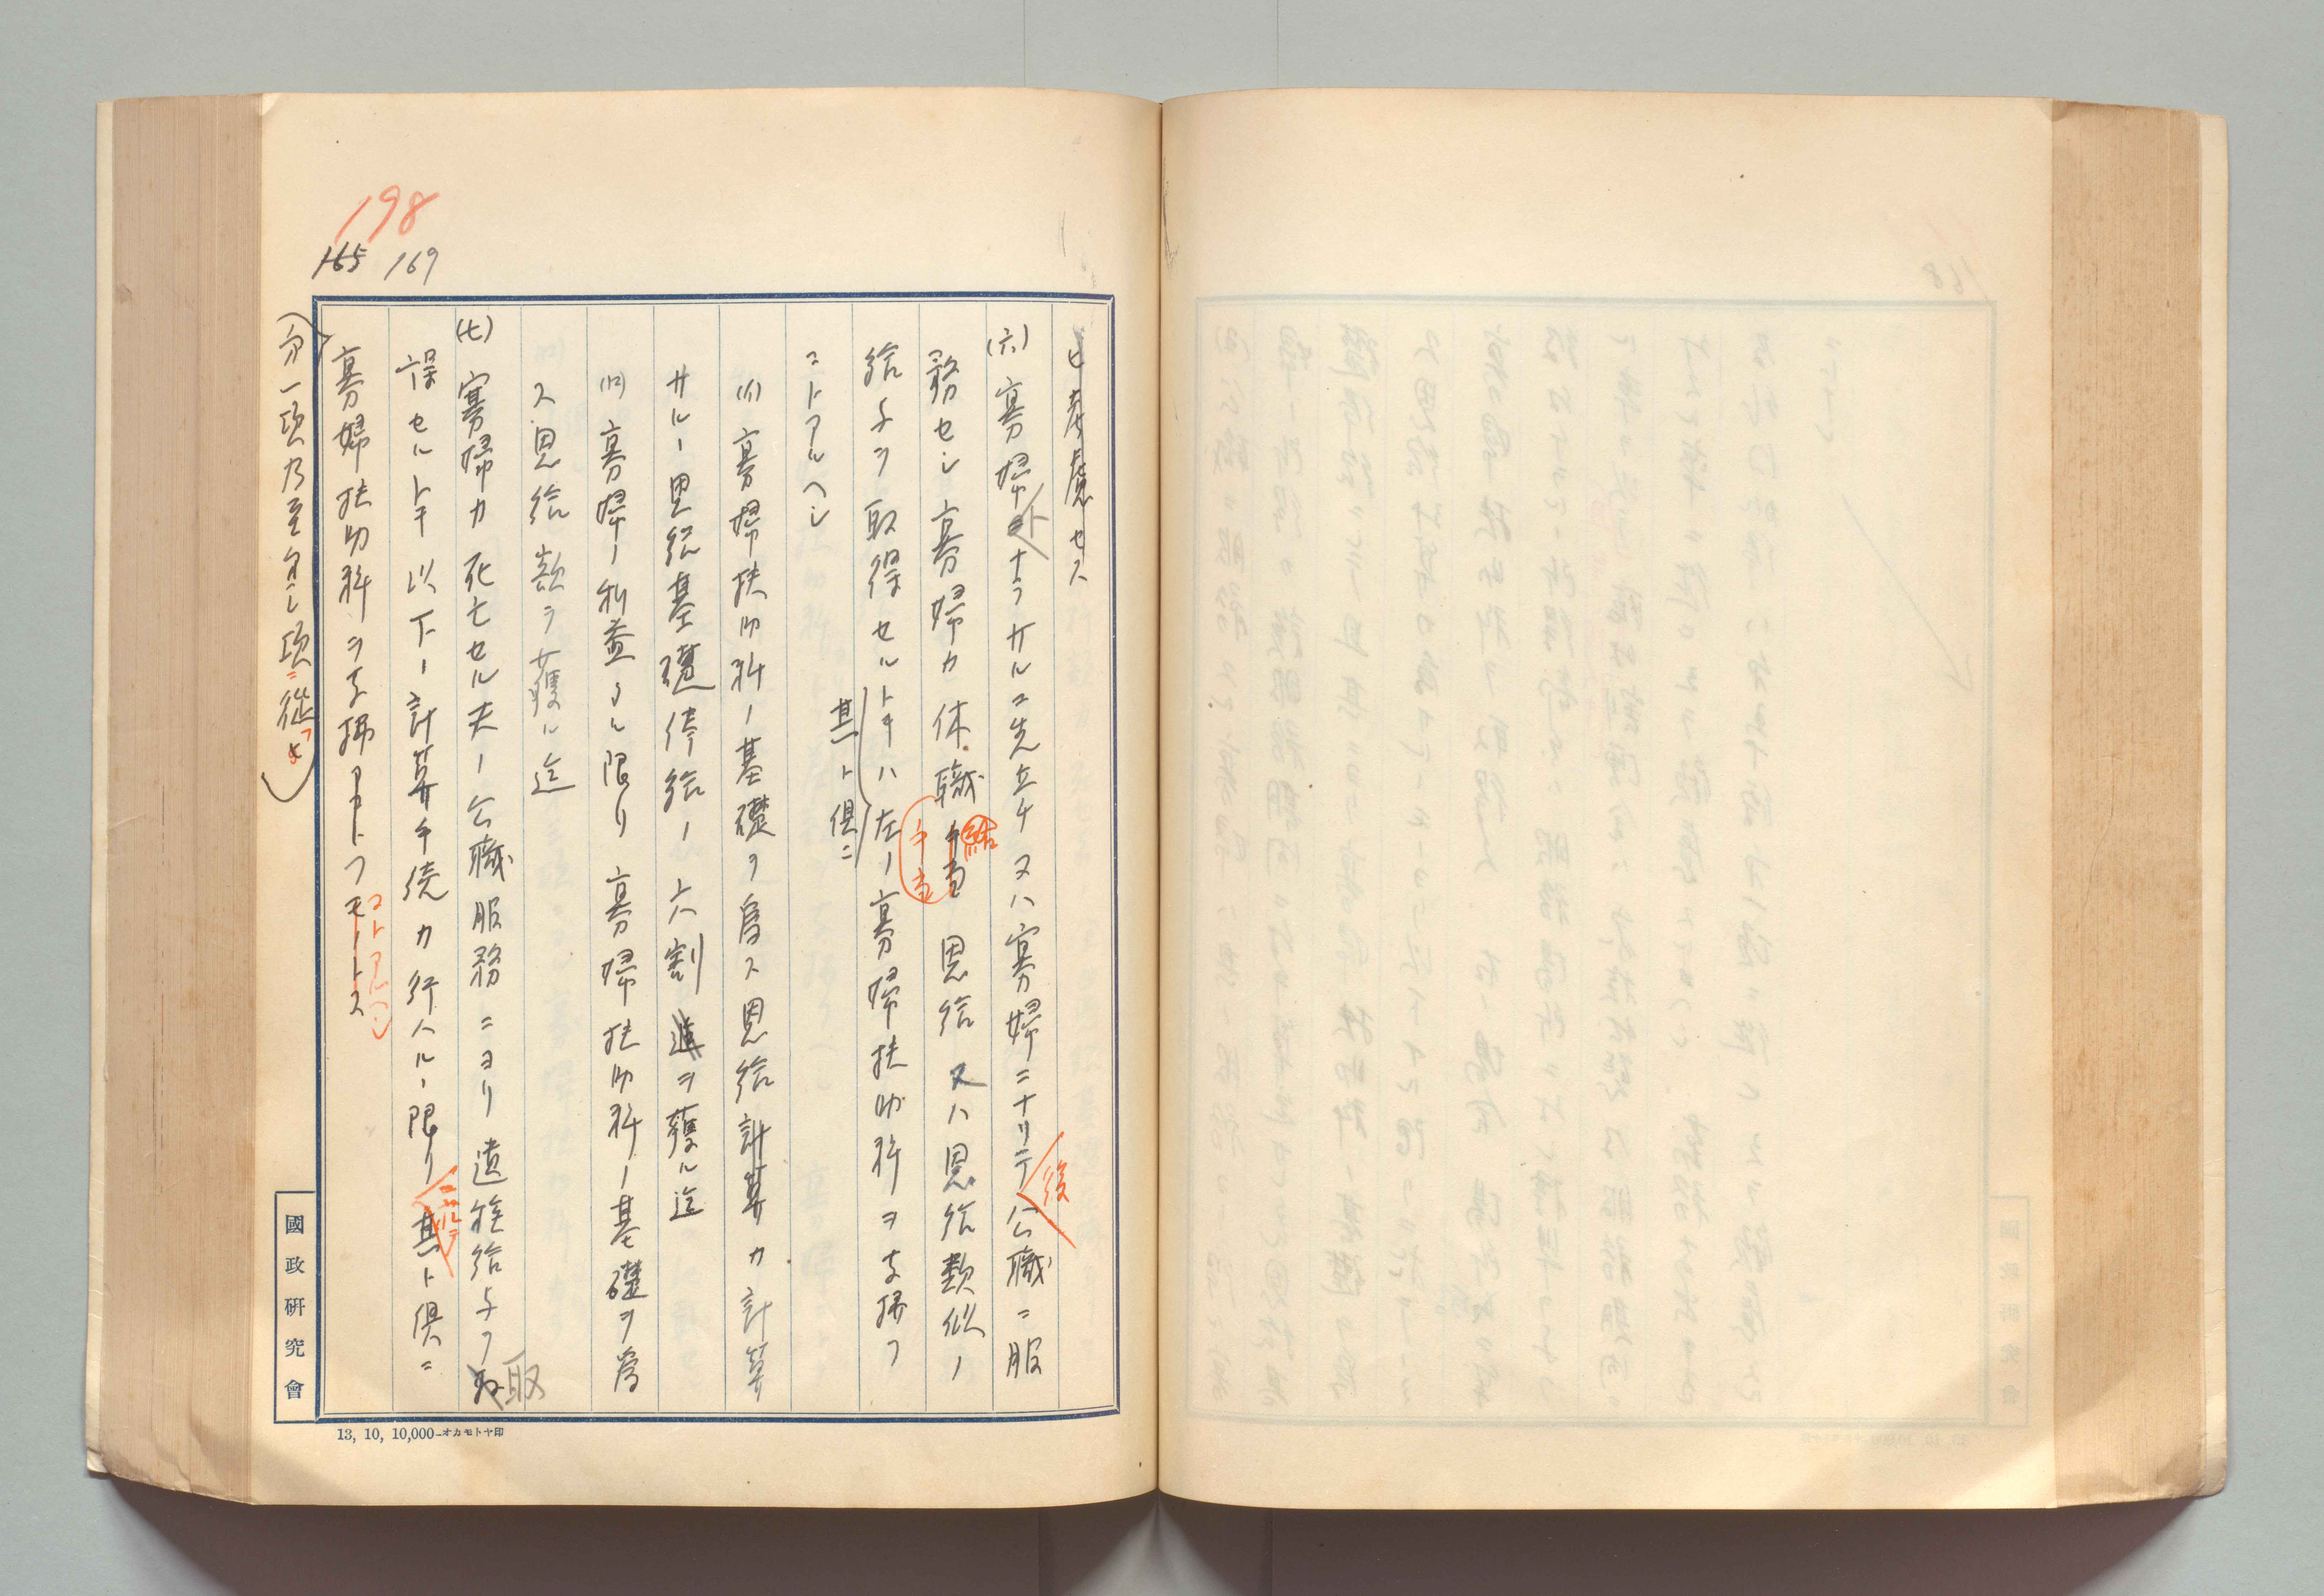 198
165 169
ヒ考慮セス
(六) 寡婦トナラサルニ先立チ又ハ寡婦ニナリテ後公職ニ服
務セシ寡婦カ休職給手当 手当 恩給又ハ恩給類似ノ
給与ヲ取得セルトキハ左ノ寡婦扶助料ヲ支拂フ
其ト倶ニ
コトアルヘシ
(イ) 寡婦扶助料ノ基礎ヲ為ス恩給計算カ計算
サルル恩給基礎俸給ノ六割ヲ獲ル迄
(ロ) 寡婦ノ利益ナル限リ寡婦扶助料ノ基礎ヲ為
ス恩給額ヲ獲ル迄
(七) 寡婦カ死亡セル夫ノ公職服務ニヨリ遺族給与ヲ取
得セルトキ以下ノ計算手続カ行ハルル限リ其ト倶ニ
寡婦扶助料ヲ支拂フモノトス
コトアルヘシ
第一項乃至第三項ニ従フ
國政研究會
13, 10, 10,000—オカモトヤ印